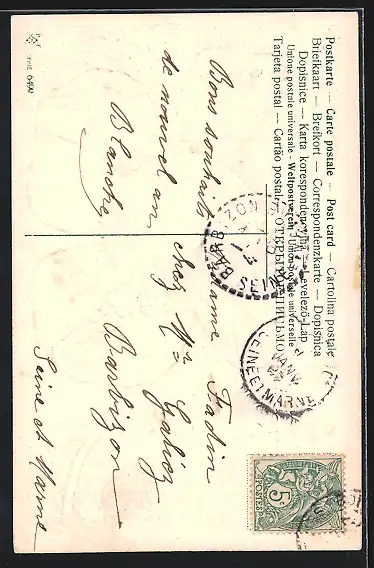 Postkarte — Carte postale — Post card — Cartolina postale
Briefkaart — Brefkort — Correspondenzkarte — Dopisnica
Dopisnice — Karta korespondencyjna — Levelező-Lap
Unione postale universale - Weltpostverein - Union postale universelle
Tarjeta postal — Cartão postal — ОТКРЫТОЕ ПИСЬМО
Bons souhaits
de nouvel an
Blanche
Fadin
chez Mr
Barbizon
Seine et Marne
BARBIZON
SEINE ET MARNE
5
POSTES
6499